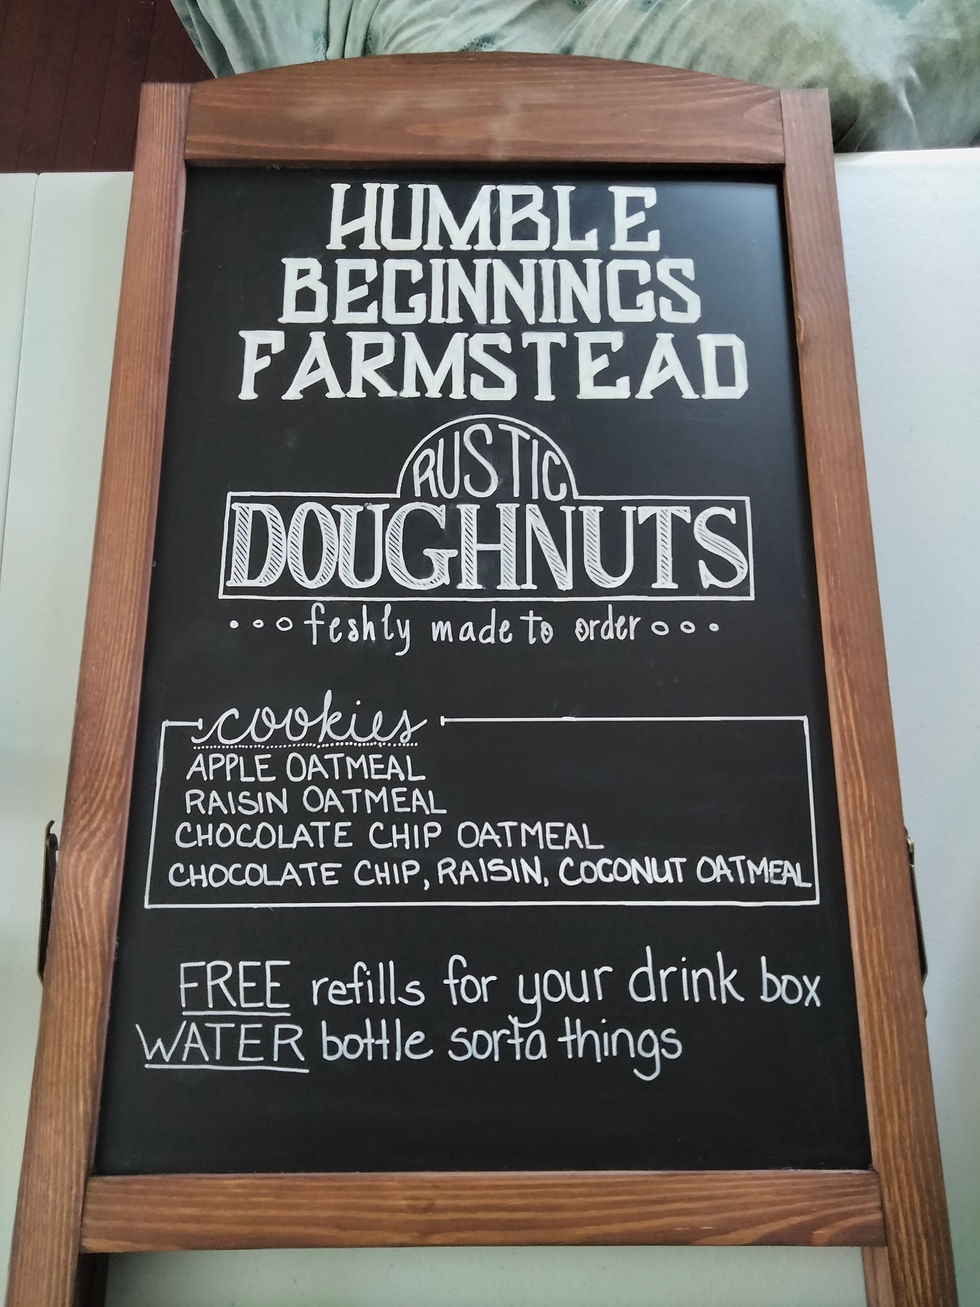 HUMBLE
BEGINNINGS
FARMSTEAD
RUSTIC
DOUGHNUTS
feshly made to order
cookies
APPLE OATMEAL
RAISIN OATMEAL
CHOCOLATE CHIP OATMEAL
CHOCOLATE CHIP, RAISIN, COCONUT OATMEAL
FREE refills for your drink box
WATER bottle sorta things